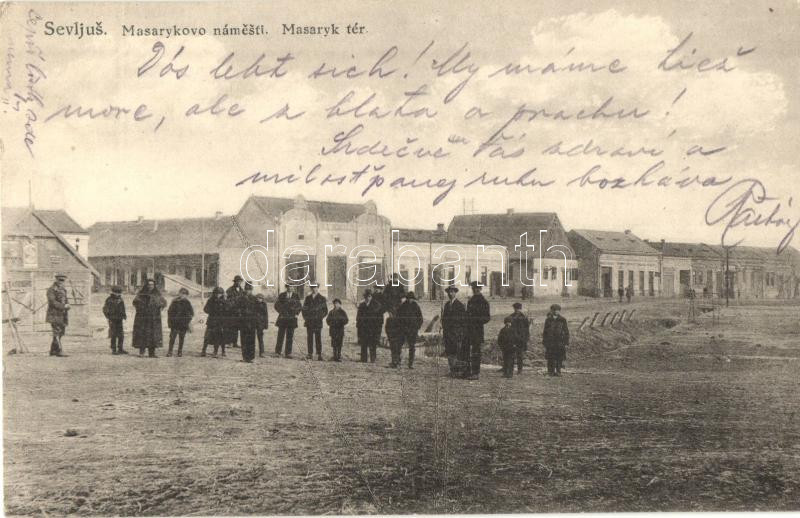 Sevljuš. Masarykovo náměšti. Masaryk tér.
Dás lebt sich! My máme tiež
more, ale z blata a prachu!
Srdečně Vás zdraví a
milosť panej ruku bozkáva
darabanth